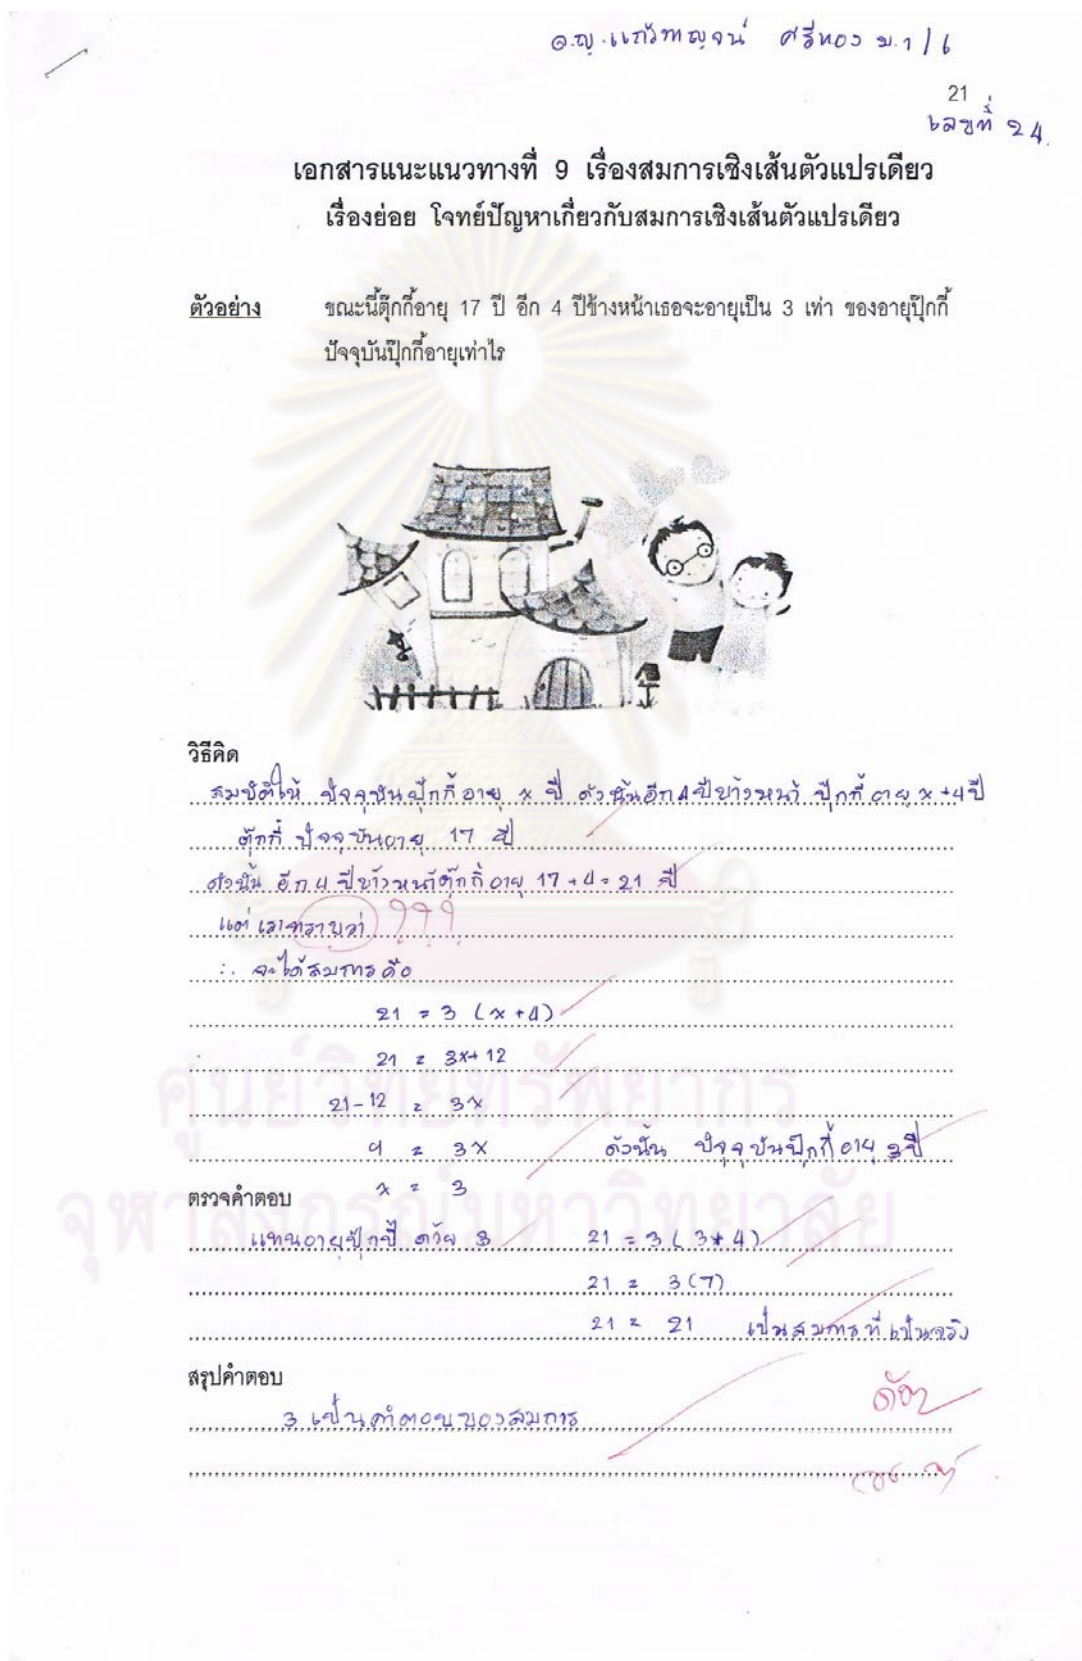 ด.ญ.แก้วกาญจน์ ศรีทอง ม.1/6
21
เลขที่ 24.
เอกสารแนะแนวทางที่ 9 เรื่องสมการเชิงเส้นตัวแปรเดียว
เรื่องย่อย โจทย์ปัญหาเกี่ยวกับสมการเชิงเส้นตัวแปรเดียว
ตัวอย่าง ขณะนี้ตุ๊กกี้อายุ 17 ปี อีก 4 ปีข้างหน้าเธอจะอายุเป็น 3 เท่า ของอายุปุ๊กกี้
ปัจจุบันปุ๊กกี้อายุเท่าไร
วิธีคิด
สมมติให้ ปัจจุบันปุ๊กกี้อายุ x ปี ดังนั้นอีก 4 ปีข้างหน้า ปุ๊กกี้ อายุ x+4 ปี
ตุ๊กกี้ ปัจจุบันอายุ 17 ปี
ดังนั้น อีก 4 ปีข้างหน้าตุ๊กกี้ อายุ 17+4=21 ปี
แต่ เราทราบว่า ???
∴ จะได้สมการคือ
21 = 3 (x+4)
21 = 3x+12
21-12 = 3x
9 = 3x ดังนั้น ปัจจุบันปุ๊กกี้ อายุ 3 ปี
ตรวจคำตอบ x = 3
แทนอายุปุ๊กกี้ ด้วย 3 21 = 3(3+4)
21 = 3(7)
21 = 21 เป็นสมการที่เป็นจริง
สรุปคำตอบ
3 เป็นคำตอบของสมการ
ศูนย์วิทยทรัพยากร
จุฬาลงกรณ์มหาวิทยาลัย